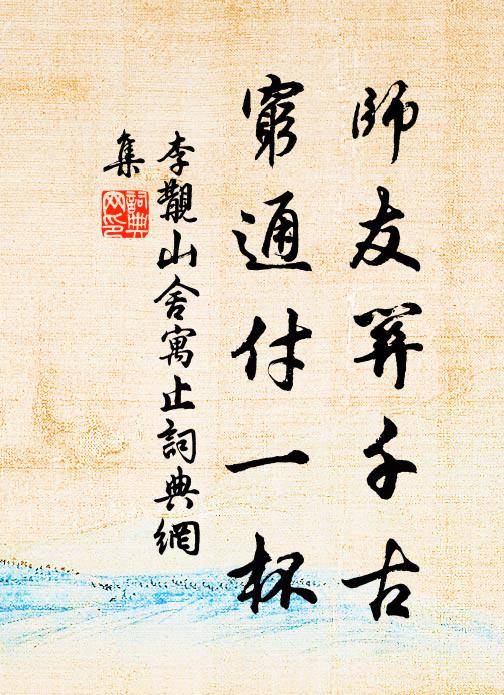 師友千古
窮通付一杯
李覯山舍寓止詞典網
集
詞典
网印